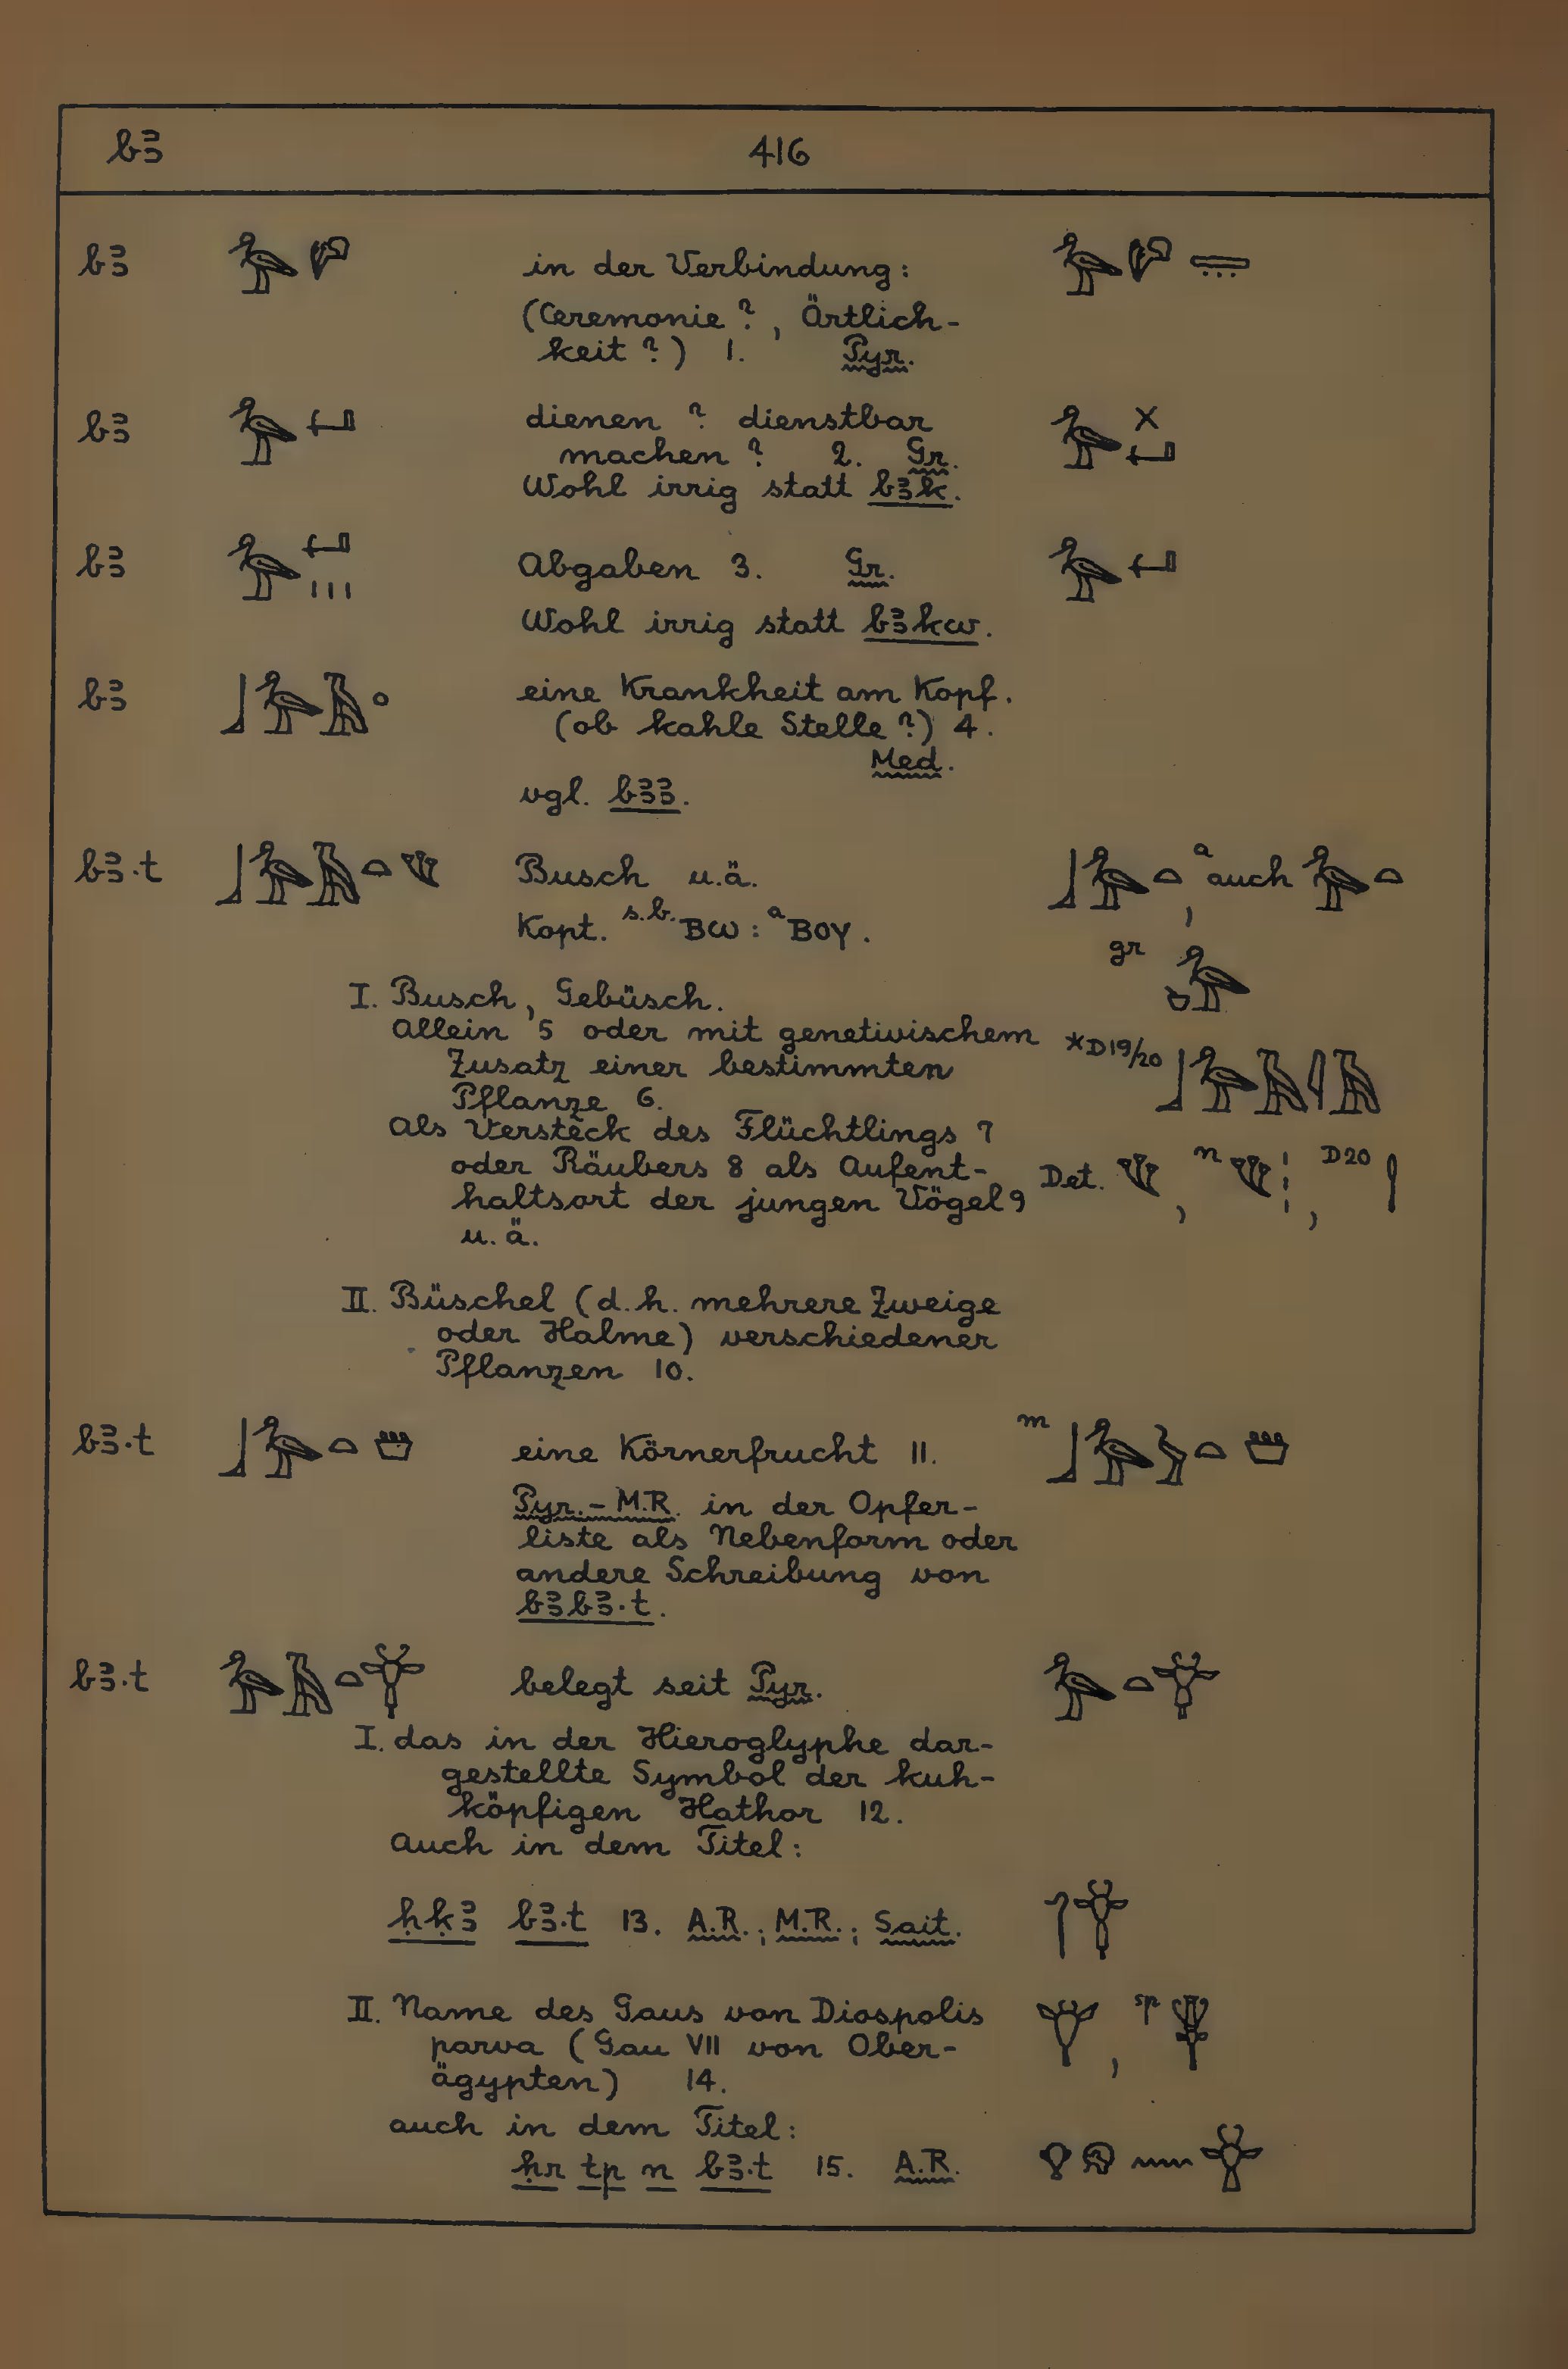 bꜣ 416
bꜣ in der Verbindung:
(Ceremonie?, Örtlich-
keit?) 1. Pyr.
bꜣ dienen? dienstbar
machen? 2. Gr.
Wohl irrig statt bꜣk.
bꜣ Abgaben 3. Gr.
Wohl irrig statt bꜣkw.
bꜣ eine Krankheit am Kopf.
(ob kahle Stelle?) 4.
Med.
vgl. bꜣꜣ.
bꜣ.t Busch u.ä. a auch
Kopt. s.b. ⲃⲱ : a ⲃⲟⲩ.
gr
I. Busch, Gebüsch.
Allein 5 oder mit genetivischem *D19/20
Zusatz einer bestimmten
Pflanze 6.
Als Versteck des Flüchtlings 7
oder Räubers 8 als Aufent- Det. , n , D20
haltsort der jungen Vögel 9
u.ä.
II. Büschel (d.h. mehrere Zweige
oder Halme) verschiedener
Pflanzen 10.
bꜣ.t eine Körnerfrucht 11. m
Pyr.-M.R. in der Opfer-
liste als Nebenform oder
andere Schreibung von
bꜣbꜣ.t.
bꜣ.t belegt seit Pyr.
I. das in der Hieroglyphe dar-
gestellte Symbol der kuh-
köpfigen Hathor 12.
Auch in dem Titel:
ḥḳꜣ bꜣ.t 13. A.R.; M.R.; Sait.
II. Name des Gaus von Diospolis , sp
parva (Gau VII von Ober-
ägypten) 14.
auch in dem Titel:
ḥr tp n bꜣ.t 15. A.R.